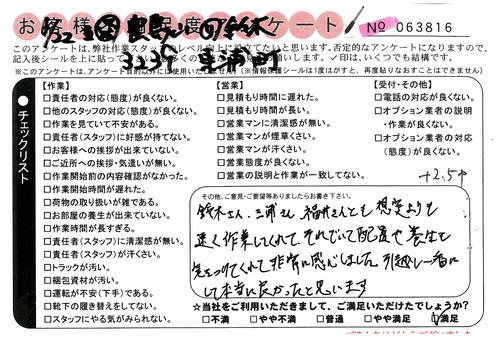 お客様満足度アンケート
No 063816
このアンケートは、弊社作業スタッフのレベル向上に役立てたいと思います。否定的なアンケートになりますので、
記入後シールを上に貼って
います。✓印は、いくつでも結構です。
※このアンケートは、アンケート目的以外には使用いたしません。(※情報保護シールは1度はがすと、再度貼りなおすことはできません)
●チェックリスト
【作業】
□責任者の対応(態度)が良くない。
□他のスタッフの対応(態度)が良くない。
□作業を見ていて不安がある。
□責任者(スタッフ)に好感が持てない。
□お客様への挨拶が出来ていない。
□ご近所への挨拶・気遣いが無い。
□作業開始前の内容確認がなかった。
□作業開始時間が遅れた。
□荷物の取り扱いが雑である。
□お部屋の養生が出来ていない。
□作業時間が長すぎる。
□責任者(スタッフ)に清潔感が無い。
□責任者(スタッフ)が汗くさい。
□トラックが汚い。
□梱包資材が汚い。
□運転が不安(下手)である。
□靴下の履き替えをしてない。
□スタッフにやる気がみられない。
【営業】
□見積もり時間に遅れた。
□見積もり時間が長い。
□営業マンに清潔感が無い。
□営業マンが煙草くさい。
□営業マンが汗くさい。
□営業態度が良くない。
□営業の説明と作業が一致してない。
【受付・その他】
□電話の対応が良くない。
□オプション業者の説明
・作業が良くない。
□オプション業者の対応
(態度)が良くない。
+2.5P
その他、ご意見・ご要望等ありましたらお書き下さい。
鈴木さん、三浦さん、福井さんとも想定よりも
速く作業してくれて、それでいて配慮や養生も
気をつけてくれて非常に感心しました。引越し一番に
して本当に良かったと思います
☆当社をご利用いただきまして、ご満足いただけたでしょうか?
□不満 □やや不満 □普通 □やや満足 ☑満足